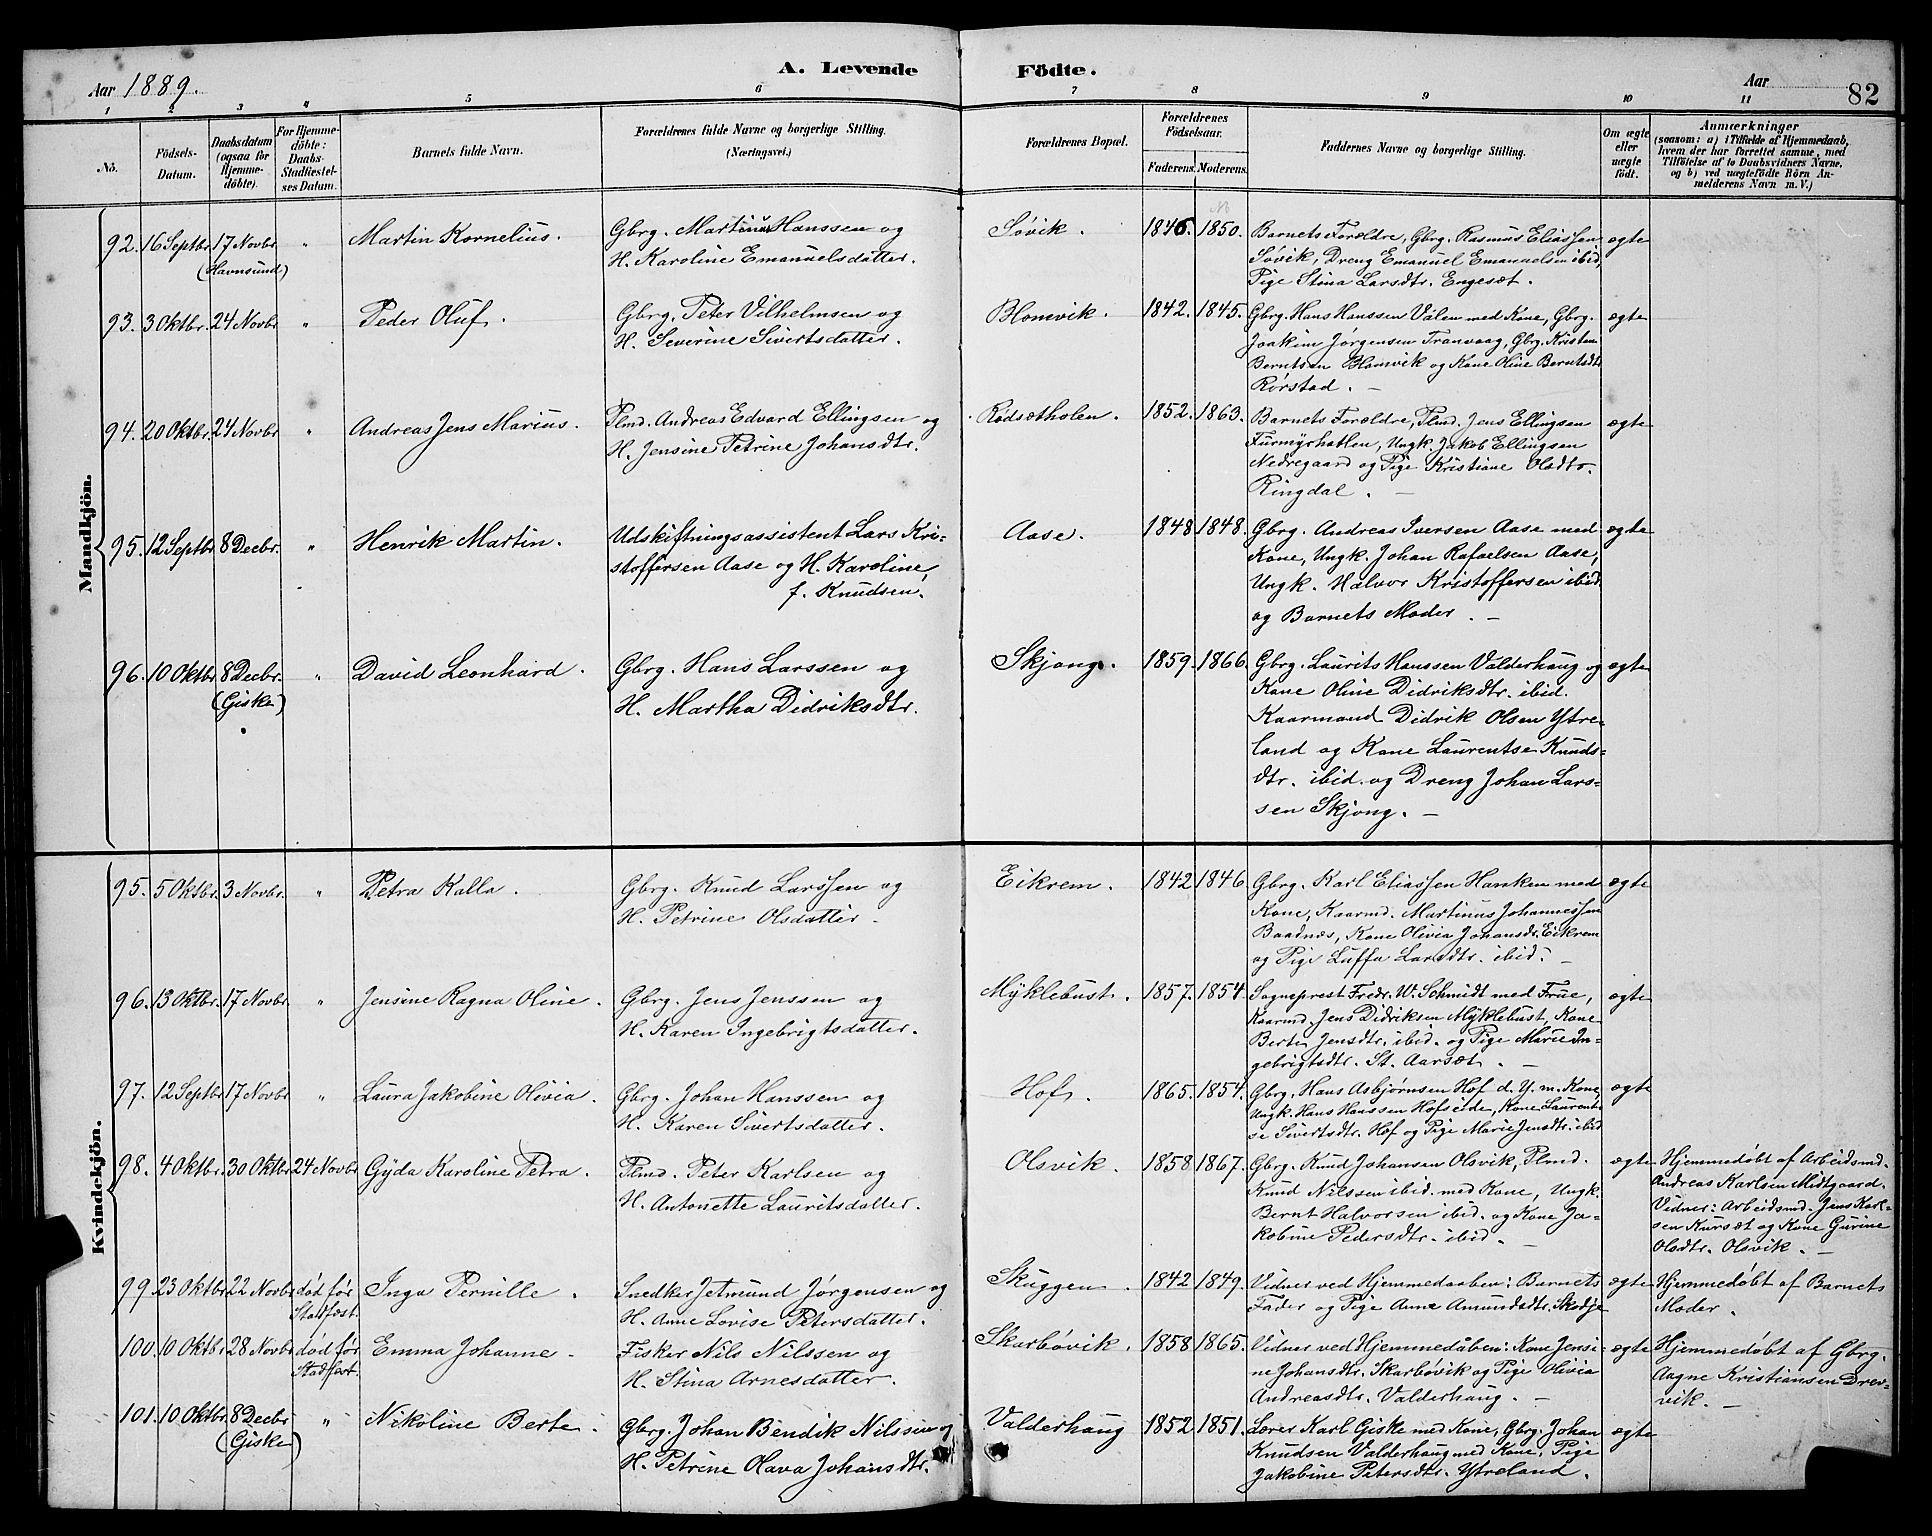 Aar 1889.
A. Levende
Födte.
Aar
82
1 2 3 4 5 6 7 8 9 10 11
No.
Födsels-
Datum.
Daabsdatum
(ogsaa for
Hjemme-
döbte).
For Hjemme-
döbte:
Daabs-
Stadfæstel-
ses Datum.
Barnets fulde Navn.
Forældrenes fulde Navne og borgerlige Stilling.
(Næringsvei.)
Forældrenes Bopæl.
Forældrenes
Födselsaar.
Faderens. Moderens.
Faddernes Navne og borgerlige Stilling.
Om ægte
eller
uægte
födt.
Anmærkninger
(saasom: a) i Tilfælde af Hjemmedaab,
hvem der har forrettet samme, med
Tilföielse af to Daabsvidners Navne,
og b) ved uægtefödte Börn An-
melderens Navn m. V.)
Mandkjön.
92. 16 Septbr 17 Novbr " Martin Kornelius. Gbrg. Martinus Hanssen og Søvik. 1846. 1850. Barnets Forældre, Gbrg. Rasmus Eliassen ægte
(Havnsund) H. Karoline Emanuelsdatter. Søvik, Dreng Emanuel Emanuelsen ibid,
Pige Stina Larsdtr. Engesæt.
93. 3 Oktbr. 24 Novbr " Peder Oluf. Gbrg. Peter Vilhelmsen og Blomvik. 1842. 1845. Gbrg. Hans Hanssen Valen med Kone, Gbrg. ægte
H. Severine Sivertsdatter. Joakim Jørgensen Tranvaag, Gbrg. Kristen
Berntsen Blomvik og Kone Oline Berntsdtr
Rørstad. —
94. 20 Oktbr. 24 Novbr " Andreas Jens Marius. Plmd. Andreas Edvard Ellingsen og Rødsætholen. 1852. 1863. Barnets Forældre, Plmd. Jens Ellingsen ægte
H. Jensine Petrine Johansdtr. Furmyrhatlen, Ungk. Jakob Ellingsen
Nedregaard og Pige Kristiane Olsdtr.
Ringdal. —
95. 12 Septbr 8 Decbr. " Henrik Martin. Udskiftningsassistent Lars Kri- Aase. 1848 1848. Gbrg. Andreas Iversen Aase med ægte
stoffersen Aase og H. Karoline, Kone, Ungk. Johan Rafaelsen Aase,
f. Knudsen. Ungk. Halvor Kristoffersen ibid
og Barnets Moder. —
96. 10 Oktbr 8 Decbr. " David Leonhard. Gbrg. Hans Larssen og Skjong. 1859. 1866. Gbrg. Laurits Hanssen Valderhaug og ægte
(Giske) H. Martha Didriksdtr. Kone Oline Didriksdtr. ibid.
Kaarmand Didrik Olsen Ytre-
land og Kone Laurentse Knuds-
dtr. ibid. og Dreng Johan Lars-
sen Skjong. —
Kvindekjön.
95. 5 Oktbr. 3 Novbr. " Petra Kalla. Gbrg. Knud Larssen og Eikrem. 1842 1846. Gbrg. Karl Eliassen Hamken med ægte
H. Petrine Olsdatter. Kone, Kaarmd. Martinus Johannessen
Baadnæs, Kone Olivia Johansdtr. Eikrem
og Pige Luffa Larsdtr. ibid. —
96. 13 Oktbr. 17 Novbr. " Jensine Ragna Oline. Gbrg. Jens Jenssen og Myklebust. 1857. 1854. Sogneprest Fredr. W. Schmidt med Frue, ægte
H. Karen Ingebrigtsdatter. Kaarmd. Jens Didriksen Myklebust, Kone
Berte Jensdtr. ibid. og Pige Marie In-
gebrigtsdtr. St. Aarsæt. —
97. 12 Septbr 17 Novbr " Laura Jakobine Olivia. Gbrg. Johan Hanssen og Hof. 1865. 1854. Gbrg. Hans Asbjørnsen Hof d. Y. m. Kone, ægte
H. Karen Sivertsdatter. Ungk. Hans Hanssen Hofseide, Kone Laurent-
se Sivertsdtr. Hof og Pige Marie Jensdtr. ibid
98. 4 Oktbr. 30 Oktbr 24 Novbr Gyda Karoline Petra. Plmd. Peter Karlsen og Olsvik. 1858 1867. Gbrg. Knud Johansen Olsvik, Plmd. ægte Hjemmedøbt af Arbeidsmd.
H. Antonette Lauritsdatter. Knud Nilssen ibid. med Kone, Ungk. Andreas Karlsen Midtgaard.
Bernt Halvorsen ibid. og Kone Ja- Vidner: Arbeidsmd. Jens Karl-
kobine Pedersdtr. ibid. — sen Kursæt og Kone Gurine
Olsdtr. Olsvik. —
99. 23 Oktbr 22 Novbr død før Inga Pernille. Snedker Jetmund Jørgensen og Skuggen. 1842 1849. Vidner ved Hjemmedaaben: Barnets ægte Hjemmedøbt af Barnets
Stadfæst. H. Anne Lovise Petersdatter. Fader og Pige Anne Amundsdtr. Skodje Moder.
100. 10 Oktbr 28 Novbr død før Emma Johanne. Fisker Nils Nilssen og Skarbøvik. 1858 1865. Vidner ved Hjemmedåben: Kone Jensi- ægte Hjemmedøbt af Gbrg.
Stadfæst. H. Stina Arnesdatter. ne Johansdtr. Skarbøvik og Pige Olivia Aagne Kristiansen Drev-
Andreasdtr. Valderhaug. — vik. —
101. 10 Oktbr 8 Decbr " Nikoline Berte. Gbrg. Johan Bendik Nilssen og Valderhaug 1852 1851. Lærer Karl Giske med Kone, Gbrg. Johan ægte
(Giske) H. Petrine Olava Johansdtr. Knudsen Valderhaug med Kone, Pige
Jakobine Petersdtr. Ytreland.